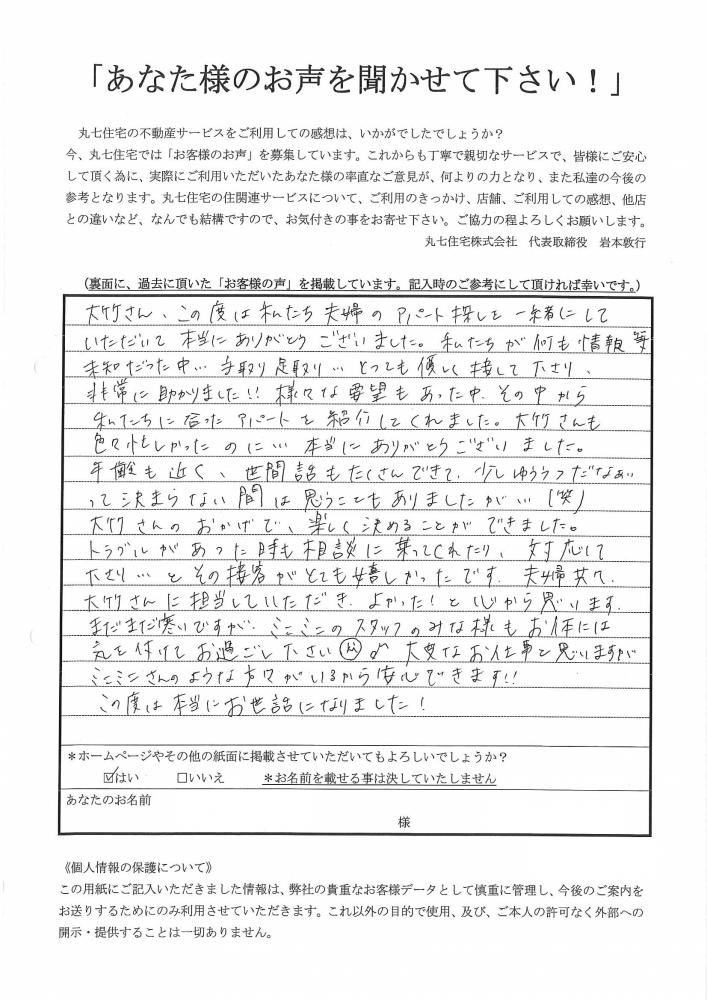 「あなた様のお声を聞かせて下さい！」
丸七住宅の不動産サービスをご利用しての感想は、いかがでしたでしょうか？
今、丸七住宅では「お客様のお声」を募集しています。これからも丁寧で親切なサービスで、皆様にご安心
して頂く為に、実際にご利用いただいたあなた様の率直なご意見が、何よりの力となり、また私達の今後の
参考となります。丸七住宅の住関連サービスについて、ご利用のきっかけ、店舗、ご利用しての感想、他店
との違いなど、なんでも結構ですので、お気付きの事をお寄せ下さい。ご協力の程よろしくお願いします。
丸七住宅株式会社　代表取締役　岩本敦行
（裏面に、過去に頂いた「お客様の声」を掲載しています。記入時のご参考にして頂ければ幸いです。）
大竹さん、この度は私たち夫婦のアパート探しを一緒にして
いただいて本当にありがとうございました。私たちが何も情報等
未知だった中…手取り足取り…とっても優しく接して下さり、
非常に助かりました!! 様々な要望もあった中、その中から
私たちに合ったアパートを紹介してくれました。大竹さんも
色々忙しかったのに…本当にありがとうございました。
年齢も近く、世間話もたくさんできて、少しゆううつだなぁい
って決まらない間は思うこともありましたが…（笑）
大竹さんのおかげで、楽しく決めることができました。
トラブルがあった時も相談に乗ってくれたり、対応して
下さり…とその接客がとても嬉しかったです。夫婦共々、
大竹さんに担当していただき、よかった！と心から思います。
まだまだ寒いですが、ミニミニのスタッフのみな様もお体には
気を付けてお過ごし下さい♪ 大変なお仕事と思いますが
ミニミニさんのような方々がいるから安心できます!!
この度は本当にお世話になりました！
＊ホームページやその他の紙面に掲載させていただいてもよろしいでしょうか？
☑はい　□いいえ　＊お名前を載せる事は決していたしません
あなたのお名前
様
《個人情報の保護について》
この用紙にご記入いただきました情報は、弊社の貴重なお客様データとして慎重に管理し、今後のご案内を
お送りするためにのみ利用させていただきます。これ以外の目的で使用、及び、ご本人の許可なく外部への
開示・提供することは一切ありません。